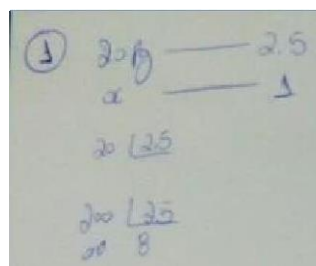 1 20g 2.5
x 1
20 2.5
200 25
00 8